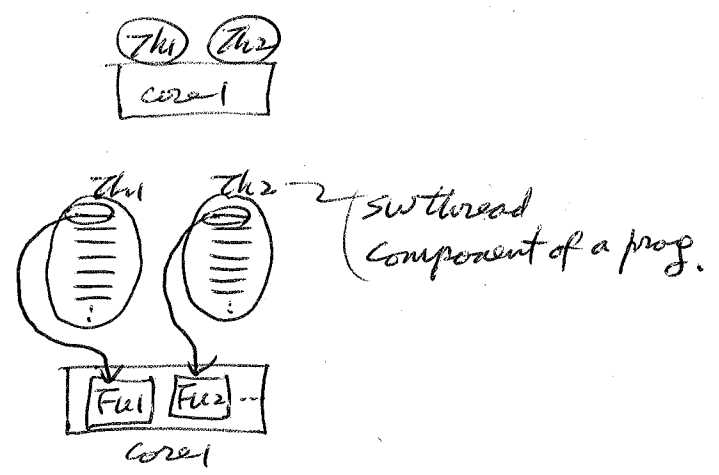 Th1 Th2
core1
Th1 Th2
sw thread
component of a prog.
Fu1 Fu2 ...
core1